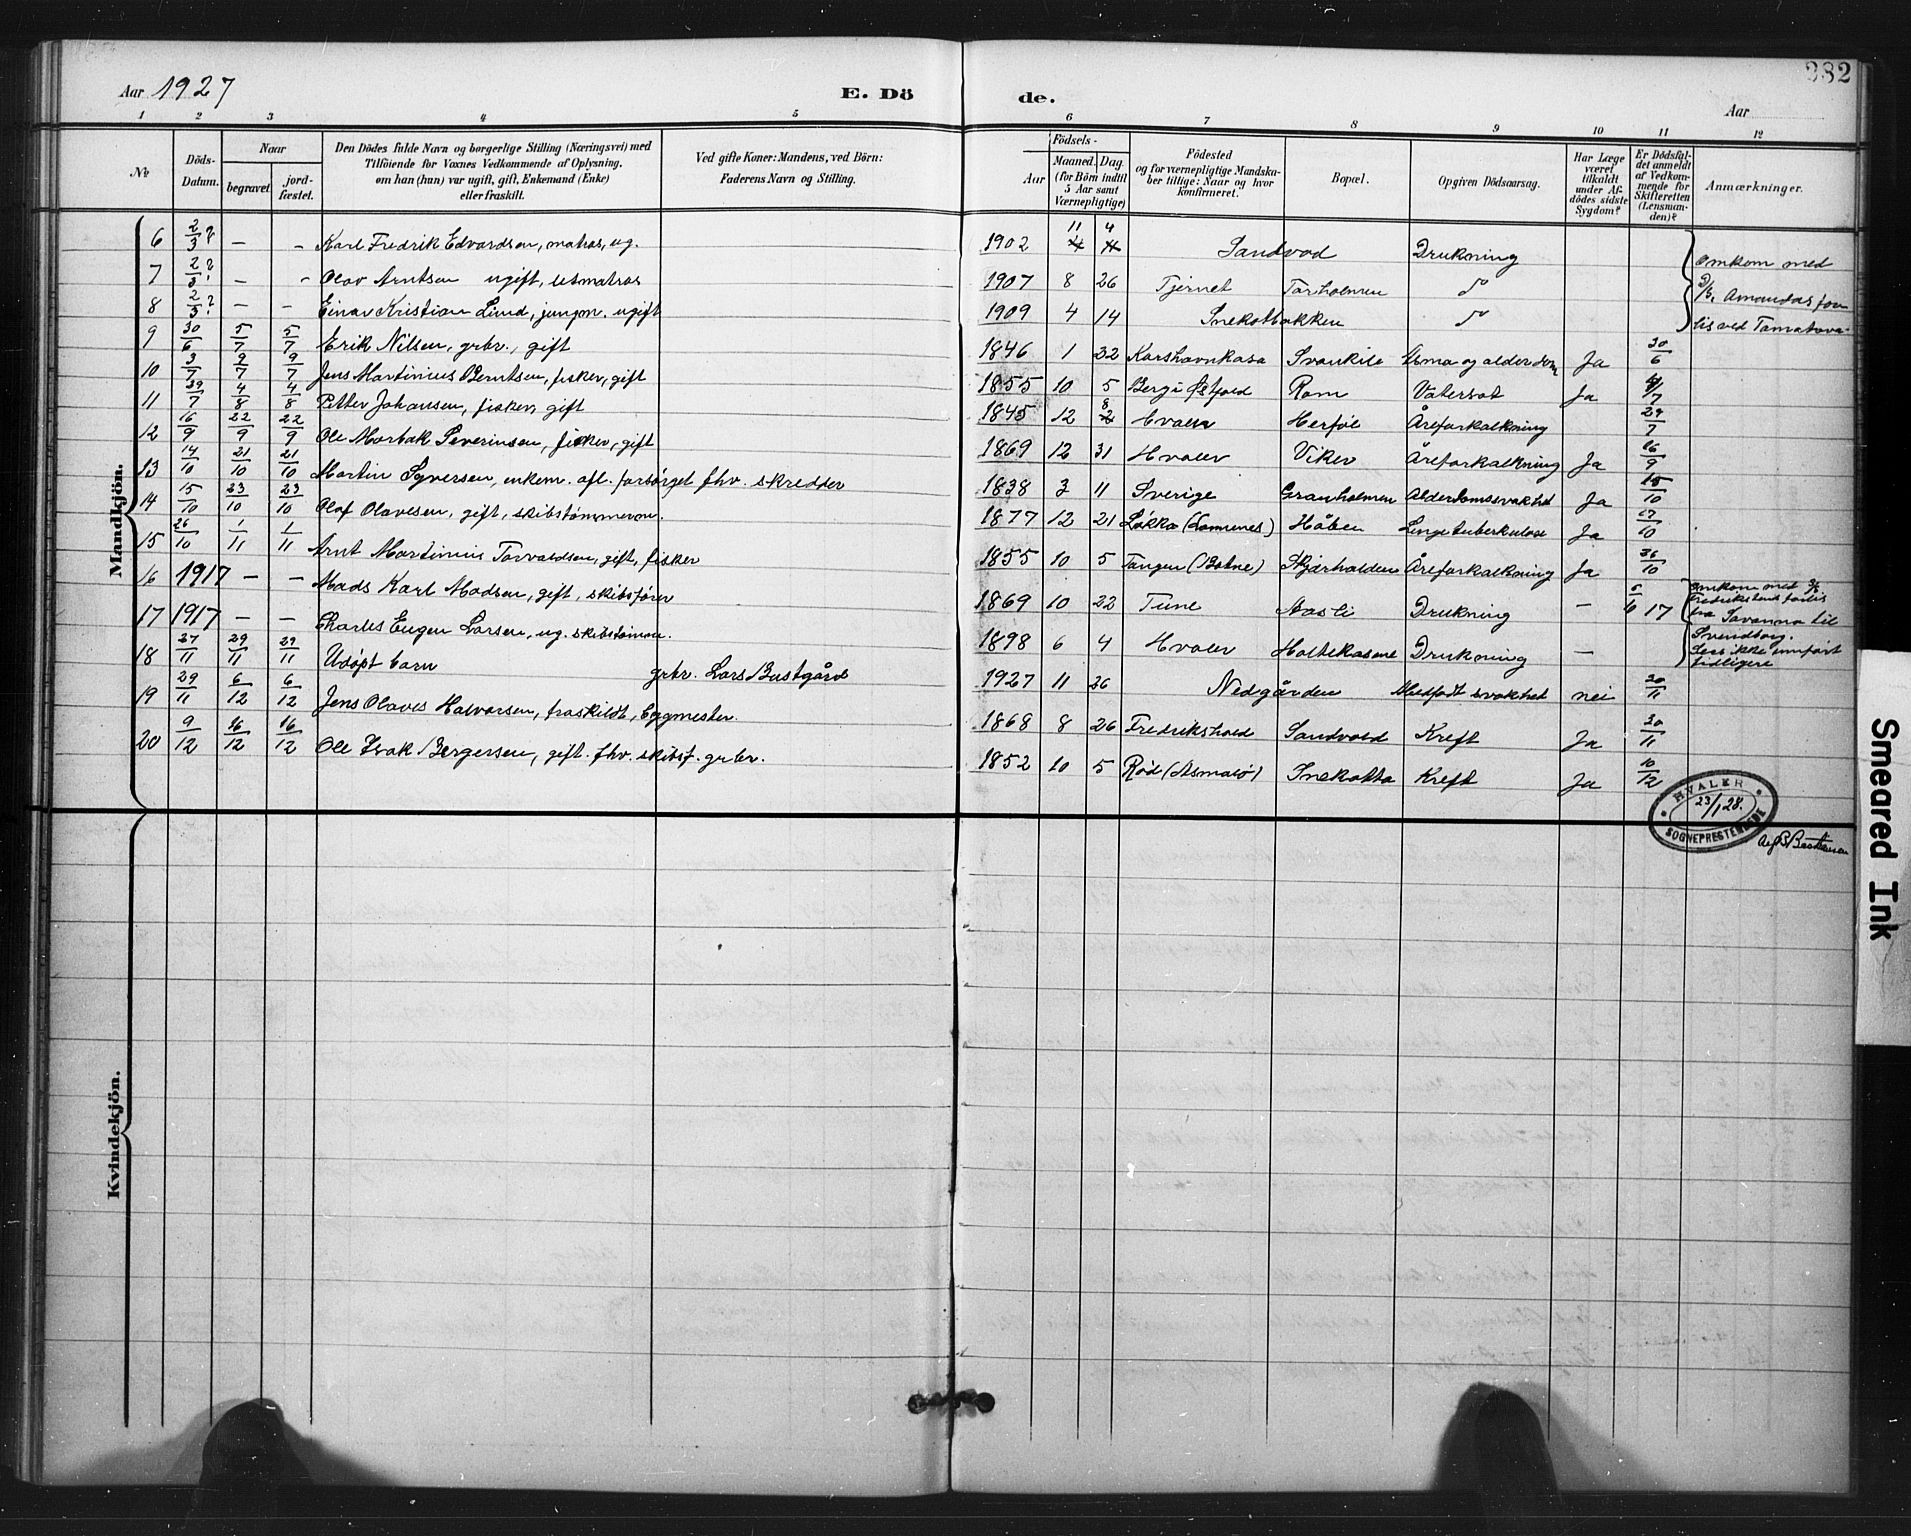 Aar 1927
E. Dö de.
Aar
382
1 2 3 4 5 6 7 8 9 10 11 12
No
Döds-Datum.
Naar
begravet
jord-fæstet.
Den Dödes fulde Navn og borgerlige Stilling (Næringsvei) med
Tilföiende for Voxnes Vedkommende af Oplysning,
om han (hun) var ugift, gift, Enkemand (Enke)
eller fraskilt.
Ved gifte Koner: Mandens, ved Börn:
Faderens Navn og Stilling.
Födsels-
Aar
Maaned. Dag.
(for Börn indtil
5 Aar samt
Værnepligtige)
Födested
og for værnepligtige Mandska-
ber tillige: Naar og hvor
konfirmeret.
Bopæl.
Opgiven Dödsaarsag.
Har Læge
været
tilkaldt
under Af-
dödes sidste
Sygdom?
Er Dödsfal-
det anmeldt
af Vedkom-
mende for
Skifteretten
(Lensman-
den)?
Anmærkninger.
Mandkjön.
6 2/3? — — Karl Fredrik Edvardsen, matros, ug. 1902 11 4 Sandvod Drukning
7 2/3? — — Olav Arntsen ugift, letmatros 1907 8 26 Tjernet Torholmen do
8 2/3? — — Einar Kristian Lund, jungm. ugift 1909 4 14 Snekotbakken do
omkom med
D/S. Amandas for
lis ved Tamatava
9 30/6 5/7 5/7 Erik Nilsen, grbr., gift 1846 1 22 Korshavnkasa Svankile Asma og alderdom Ja 30/6
10 3/7 9/7 9/7 Jens Martinius Berntsen, fisker, gift 1855 10 5 Berg i Østfold Rom Vatersot Ja 4/7
11 29/7 4/8 4/8 Petter Johansen, fisker, gift 1845 12 8 Hvaler Herføl Åreforkalkning 29/7
12 16/9 22/9 22/9 Ole Morbak Severinsen, fisker, gift 1869 12 31 Hvaler Viker Åreforkalkning Ja 16/9
13 14/10 21/10 21/10 Martin Syversen, enkem. ofl. forsørget fhv. skredder 1838 3 11 Sverige Granholmen Alderdomssvakhet Ja 15/10
14 15/10 23/10 23/10 Olaf Olavesen, gift, skibstømmerm. 1877 12 21 Løkka (Lammenes) Håben Lungetuberkulose Ja 17/10
15 26/10 1/11 1/11 Arnt Martinius Torvaldsen, gift, fisker 1855 10 5 Tangen (Botne) Skjærhalden Åreforkalkning Ja 26/10
16 1917 — — Mads Karl Madsen, gift, skibsfører 1869 10 22 Tune Aasli Drukning — 5/6 17
17 1917 — — Charles Eugen Larsen, ug. skibstømm. 1898 6 4 Hvaler Holtekasene Drukning —
omkom med D/S
Fredrikstens forlis
fra Savanna til
Svendborg.
Sees ikke innført
tidligere
18 27/11 29/11 29/11 Udøpt barn grbr. Lars Bustgård 1927 11 26 Nedgården Medfødt svakhet nei 30/11
19 29/11 6/12 6/12 Jens Olaves Halvorsen, fraskildt, byggmester. 1868 8 26 Fredrikshald Sandvold Kreft Ja 30/11
20 9/12 16/12 16/12 Ole Isak Bergersen, gift. fhv. skibsf. grbr. 1852 10 5 Rød (Asmalø) Snekotta Kreft Ja 10/12
HVALER
23/1 28.
SOGNEPRESTEMBEDE
Kvindekjön.
Smeared Ink